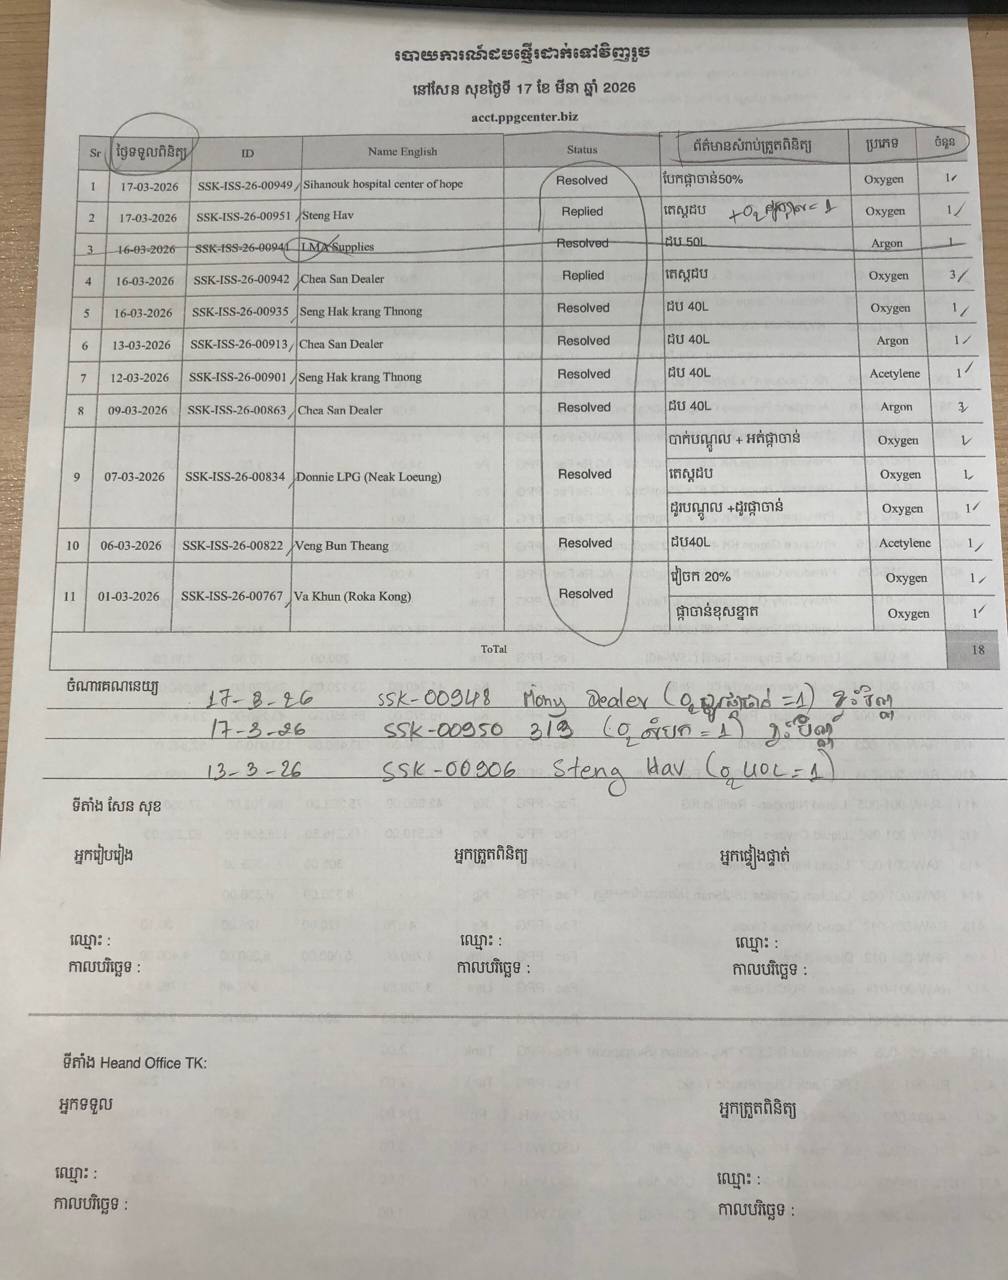 របាយការណ៍ដបផ្ញើរដាក់ទៅវិញរួច
នៅសែន សុខថ្ងៃទី 17 ខែ មីនា ឆ្នាំ 2026
acct.ppgcenter.biz
Sr ថ្ងៃទទួលពិនិត្យ ID Name English Status ព័ត៌មានសំរាប់ត្រួតពិនិត្យ ប្រភេទ ចំនួន
1 17-03-2026 SSK-ISS-26-00949 Sihanouk hospital center of hope Resolved បែកផ្កាចាន់50% Oxygen 1
2 17-03-2026 SSK-ISS-26-00951 Steng Hav Replied តេស្តដប +O2 =1 Oxygen 1
3 16-03-2026 SSK-ISS-26-00941 LMA Supplies Resolved ដប 50L Argon 1
4 16-03-2026 SSK-ISS-26-00942 Chea San Dealer Replied តេស្តដប Oxygen 3
5 16-03-2026 SSK-ISS-26-00935 Seng Hak krang Thnong Resolved ដប 40L Oxygen 1
6 13-03-2026 SSK-ISS-26-00913 Chea San Dealer Resolved ដប 40L Argon 1
7 12-03-2026 SSK-ISS-26-00901 Seng Hak krang Thnong Resolved ដប 40L Acetylene 1
8 09-03-2026 SSK-ISS-26-00863 Chea San Dealer Resolved ដប 40L Argon 3
9 07-03-2026 SSK-ISS-26-00834 Donnie LPG (Neak Loeung) Resolved បាក់បណ្តូល + អត់ផ្កាចាន់ Oxygen 1
តេស្តដប Oxygen 1
ដូរបណ្តូល +ដូរផ្កាចាន់ Oxygen 1
10 06-03-2026 SSK-ISS-26-00822 Veng Bun Theang Resolved ដប40L Acetylene 1
11 01-03-2026 SSK-ISS-26-00767 Va Khun (Roka Kong) Resolved វៀចក 20% Oxygen 1
ផ្កាចាន់ខុសខ្នាត Oxygen 1
ToTal 18
ចំណារគណនេយ្យ
17-3-26 SSK-00948 Mony Dealer (O2 =1)
17-3-26 SSK-00950 319 (O2 = 1)
13-3-26 SSK-00906 Steng Hav (O2 40L = 1)
ទីតាំង សែន សុខ
អ្នករៀបរៀង អ្នកត្រួតពិនិត្យ អ្នកផ្ទៀងផ្ទាត់
ឈ្មោះ : ឈ្មោះ : ឈ្មោះ :
កាលបរិច្ឆេទ : កាលបរិច្ឆេទ : កាលបរិច្ឆេទ :
ទីតាំង Heand Office TK:
អ្នកទទួល អ្នកត្រួតពិនិត្យ
ឈ្មោះ : ឈ្មោះ :
កាលបរិច្ឆេទ : កាលបរិច្ឆេទ :